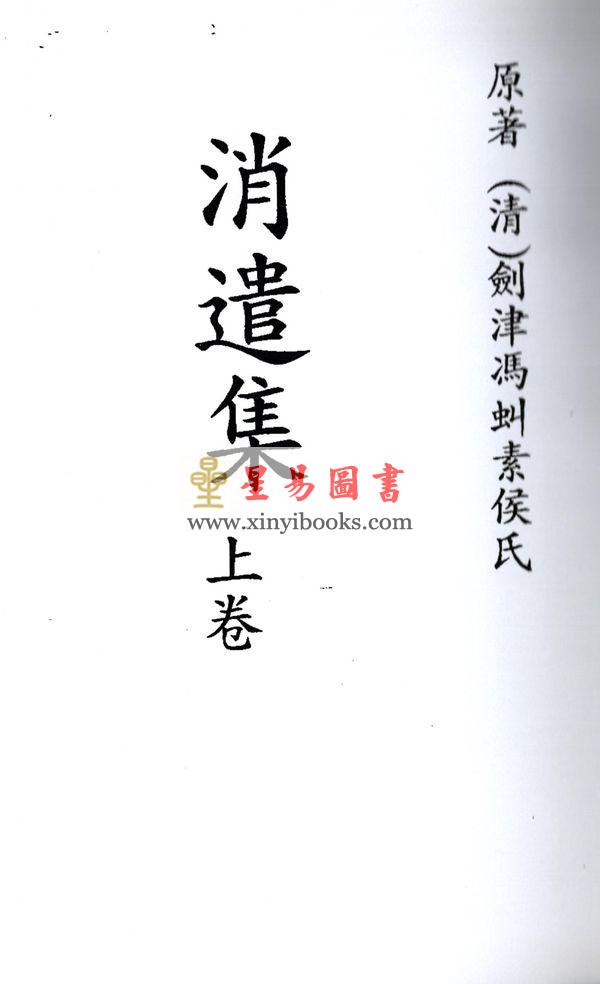 原著（清）劍津馮虯素侯氏
消遣集 上卷
星易圖書
www.xinyibooks.com